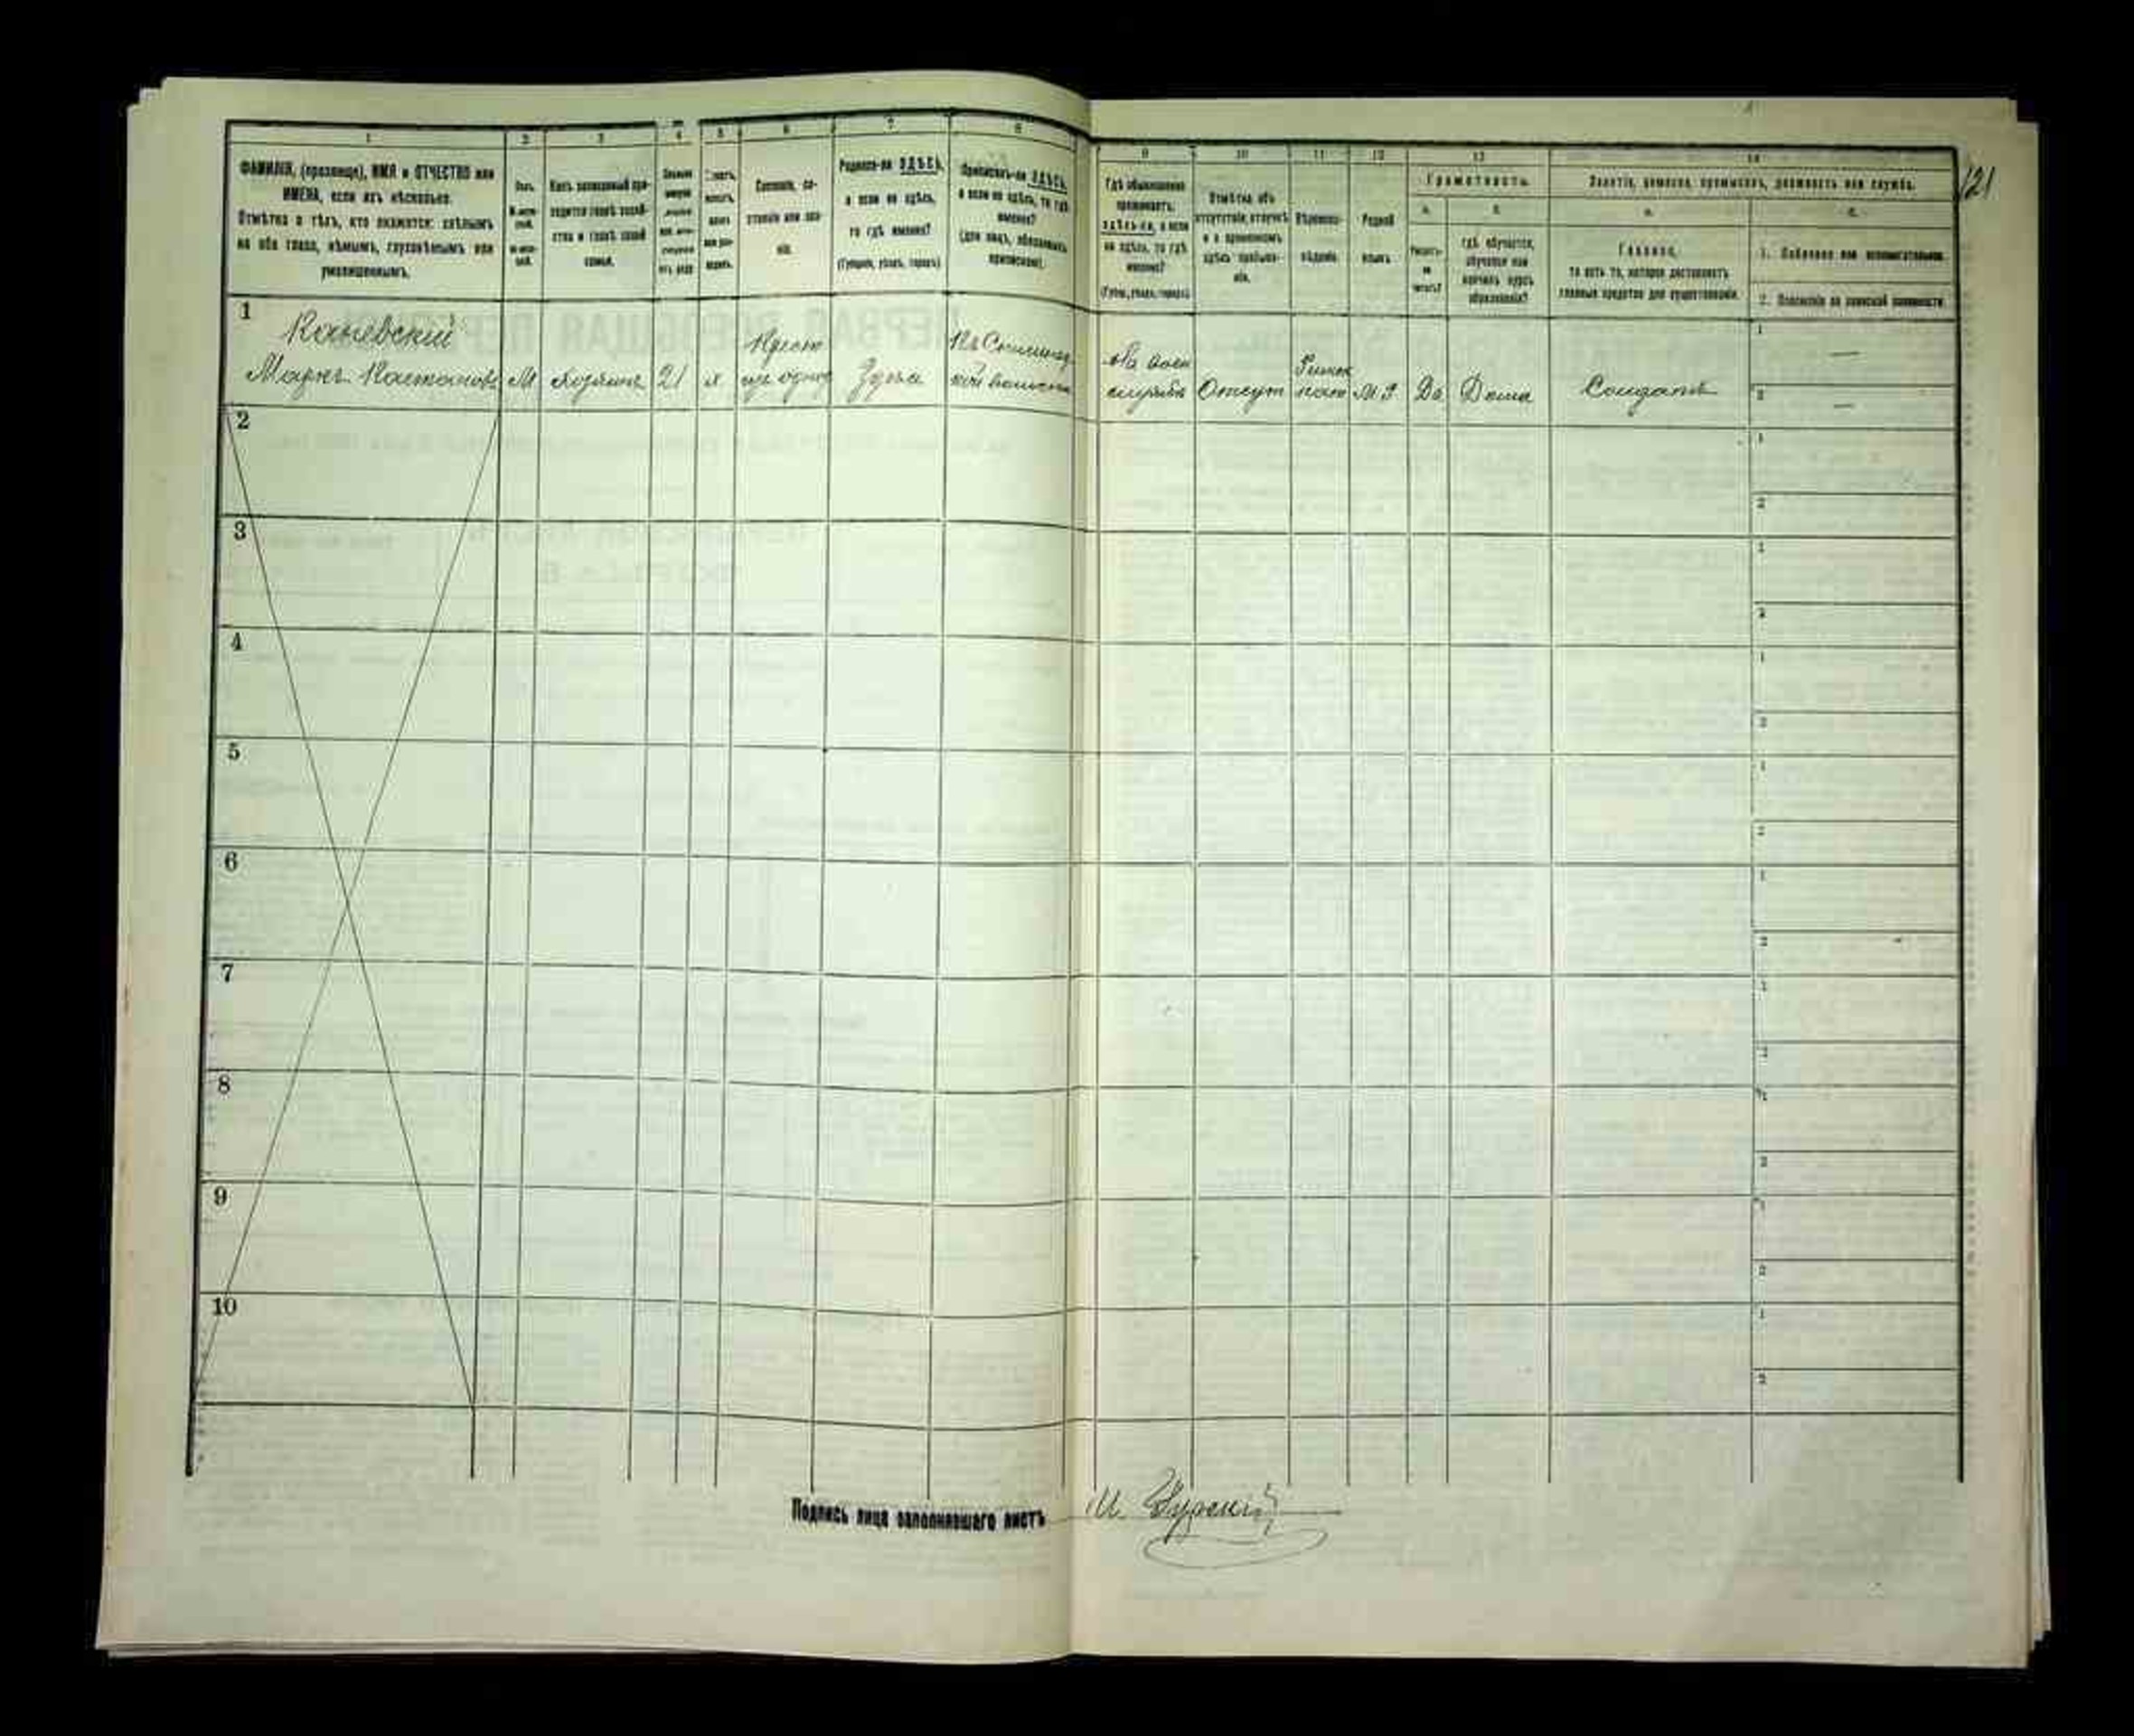 1 2 3 4 5 6 7 8
ФАМИЛІЯ, (прозвище), ИМЯ и ОТЧЕСТВО или
ИМЕНА, если ихъ нѣсколько.
Отмѣтка о тѣхъ, кто окажется: слѣпымъ
на оба глаза, нѣмымъ, глухонѣмымъ или
умалишеннымъ.
Полъ.
Какъ записанный при-
ходится главѣ хозяй-
ства и главѣ своей
семьи.
Сословіе, со-
стояніе или зва-
ніе.
Родился-ли ЗДѢСЬ,
а если не здѣсь,
то гдѣ именно?
(Губернія, уѣздъ, городъ)
Приписанъ-ли ЗДѢСЬ,
а если не здѣсь, то гдѣ
именно?
(для лицъ, обязанныхъ
припискою).
9 10 11 12 13 14
Гдѣ обыкновенно
проживаетъ:
здѣсь-ли, а если
не здѣсь, то гдѣ
именно?
(Губер., уѣздъ, городъ)
Отмѣтка объ
отсутствіи, отлучкѣ
и о временномъ
здѣсь пребыва-
ніи.
Вѣроиспо-
вѣданіе.
Родной
языкъ
Грамотность.
а.
б.
Умѣетъ-
ли
читать?
гдѣ обучается,
обучался или
кончилъ курсъ
образованія?
Занятіе, ремесло, промыселъ, должность или служба.
а.
б.
Главное,
то есть то, которое доставляетъ
главныя средства для существованія.
1. Побочное или вспомогательное.
2. Положеніе по воинской повинности.
121
1
Каневскій
Маркъ
М хозяинъ 21 х
Крест
Здѣсь
волости
На воен
службѣ
Отсут
Римск
кат
Да
Дома
Солдатъ
1 —
2 —
2
3
4
5
6
7
8
9
10
Подпись лица заполнявшаго листъ